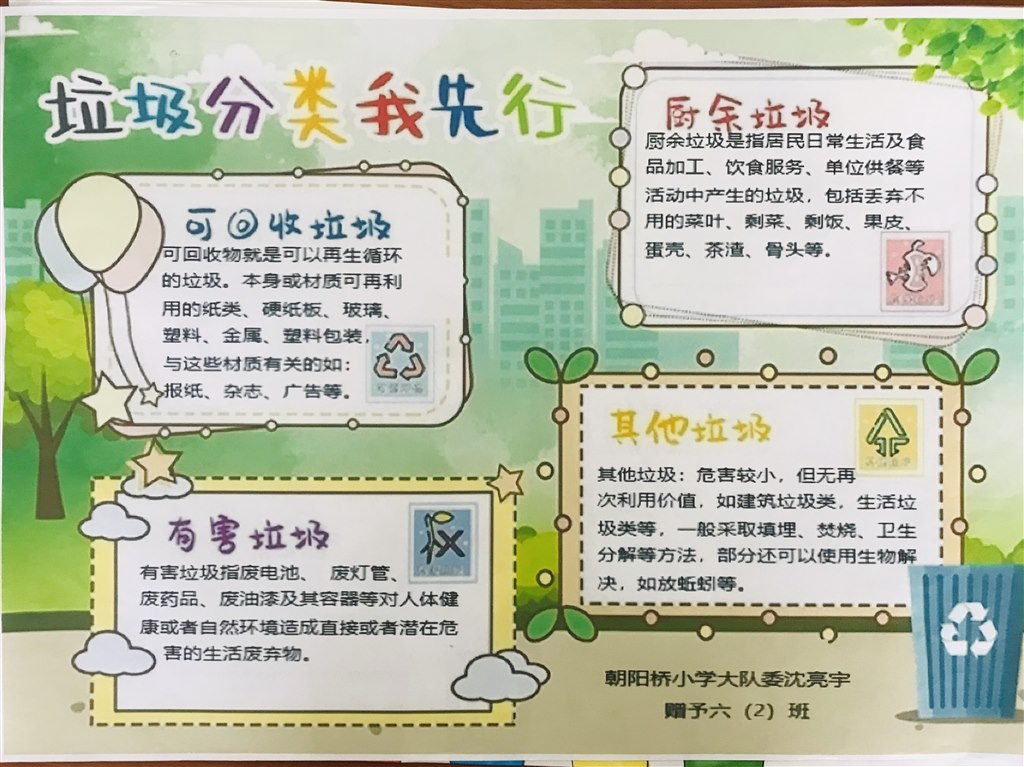 垃圾分类我先行
可回收垃圾
可回收物就是可以再生循环
的垃圾。本身或材质可再利
用的纸类、硬纸板、玻璃、
塑料、金属、塑料包装，
与这些材质有关的如：
报纸、杂志、广告等。
厨余垃圾
厨余垃圾是指居民日常生活及食
品加工、饮食服务、单位供餐等
活动中产生的垃圾，包括丢弃不
用的菜叶、剩菜、剩饭、果皮、
蛋壳、茶渣、骨头等。
有害垃圾
有害垃圾指废电池、 废灯管、
废药品、废油漆及其容器等对人体健
康或者自然环境造成直接或者潜在危
害的生活废弃物。
其他垃圾
其他垃圾：危害较小，但无再
次利用价值，如建筑垃圾类，生活垃
圾类等，一般采取填埋、焚烧、卫生
分解等方法，部分还可以使用生物解
决，如放蚯蚓等。
朝阳桥小学大队委沈亮宇
赠予六（2）班